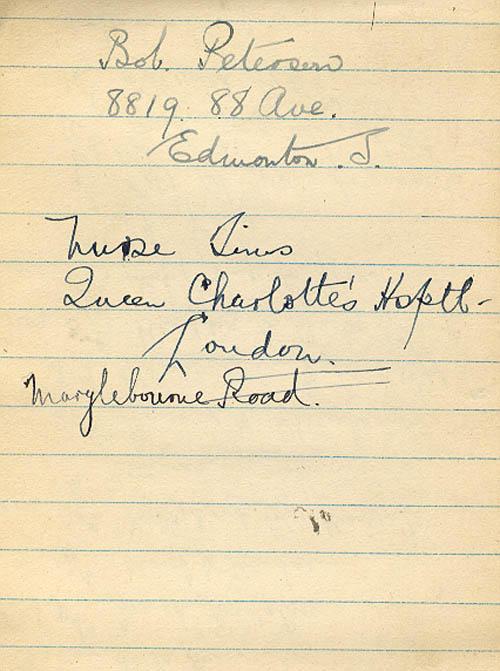 Bob. Peterson
8819. 88 Ave.
Edmonton. S.
Nurse Sims
Queen Charlotte's Hosptl-
London.
Marylebourne Road.